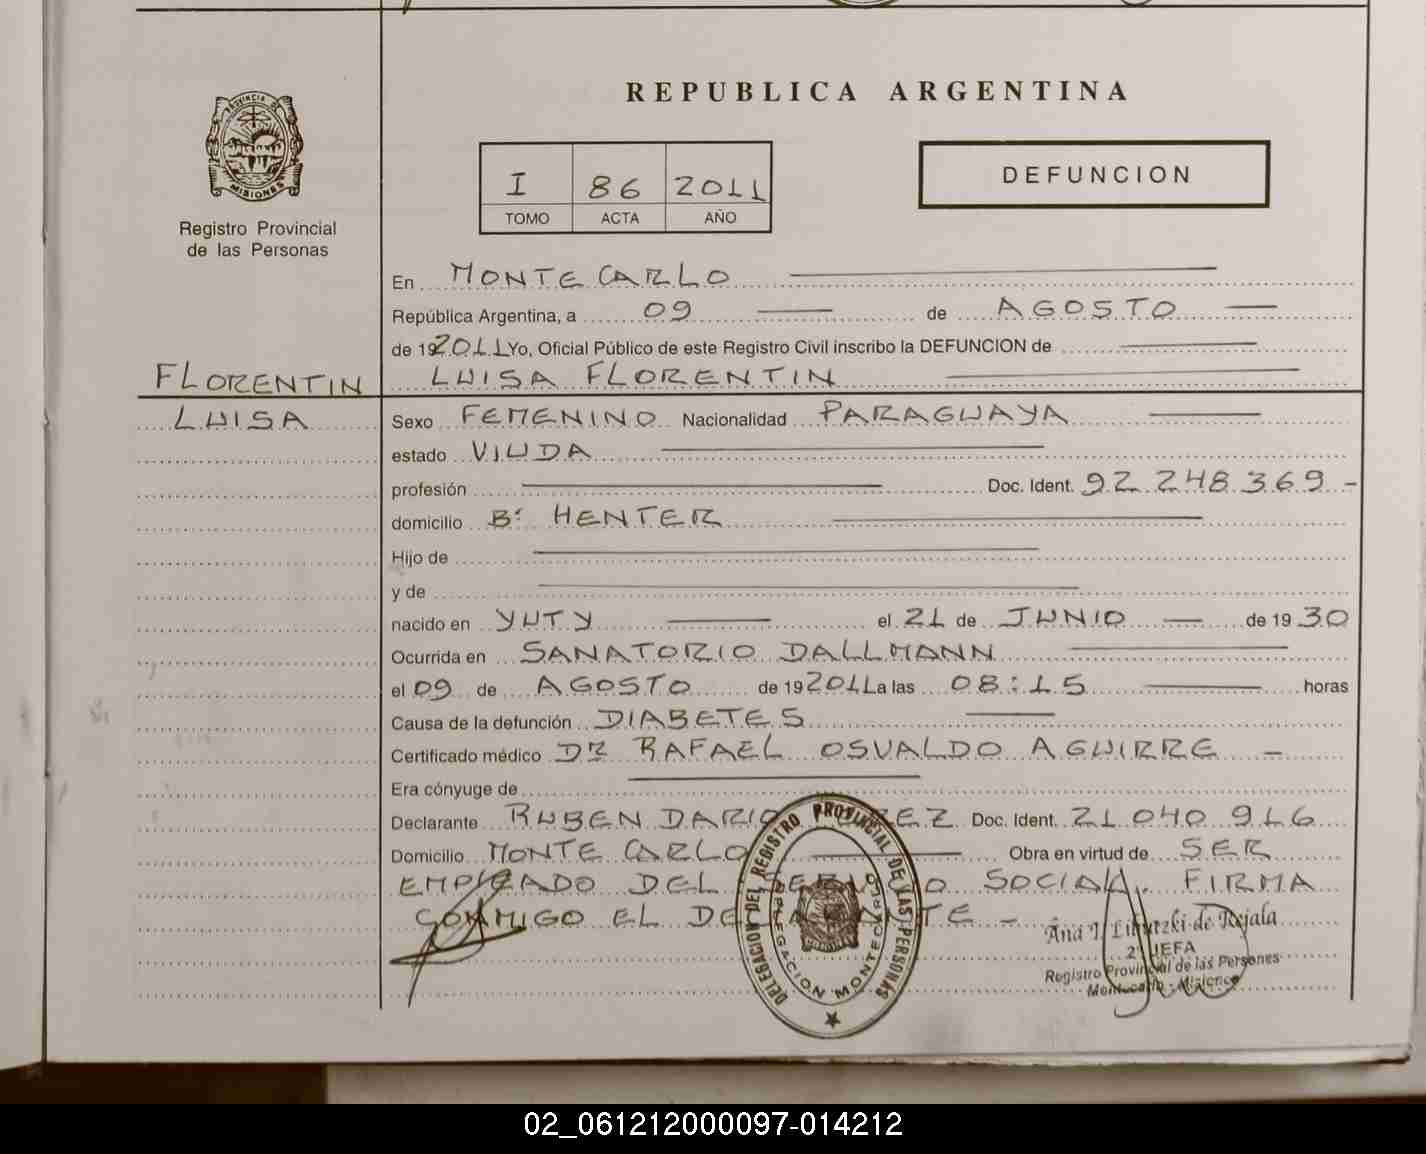 PROVINCIA DE
MISIONES
Registro Provincial
de las Personas
REPUBLICA ARGENTINA
I 86 2011
TOMO ACTA AÑO
DEFUNCION
En MONTE CARLO
República Argentina, a 09 de AGOSTO
de 192011 Yo, Oficial Público de este Registro Civil inscribo la DEFUNCION de
FLORENTIN
LUISA
LUISA FLORENTIN
Sexo FEMENINO Nacionalidad PARAGUAYA
estado VIUDA
profesión Doc. Ident. 92 248 369 -
domicilio Bº HENTER
Hijo de
y de
nacido en YUTY el 21 de JUNIO de 19 30
Ocurrida en SANATORIO DALLMANN
el 09 de AGOSTO de 192011 a las 08:15 horas
Causa de la defunción DIABETES
Certificado médico Dr RAFAEL OSVALDO AGUIRRE -
Era cónyuge de
Declarante RUBEN DARIO Doc. Ident. 21 040 916
Domicilio MONTE CARLO Obra en virtud de SER
EMPLEADO DEL SERVICIO SOCIAL. FIRMA
CONMIGO EL DECLARANTE -
DELEGACION DEL REGISTRO PROVINCIAL DE LAS PERSONAS
DELEGACION MONTECARLO
Ana de Rejala
2º JEFA
Registro Provincial de las Personas
Montecarlo - Misiones
02_061212000097-014212